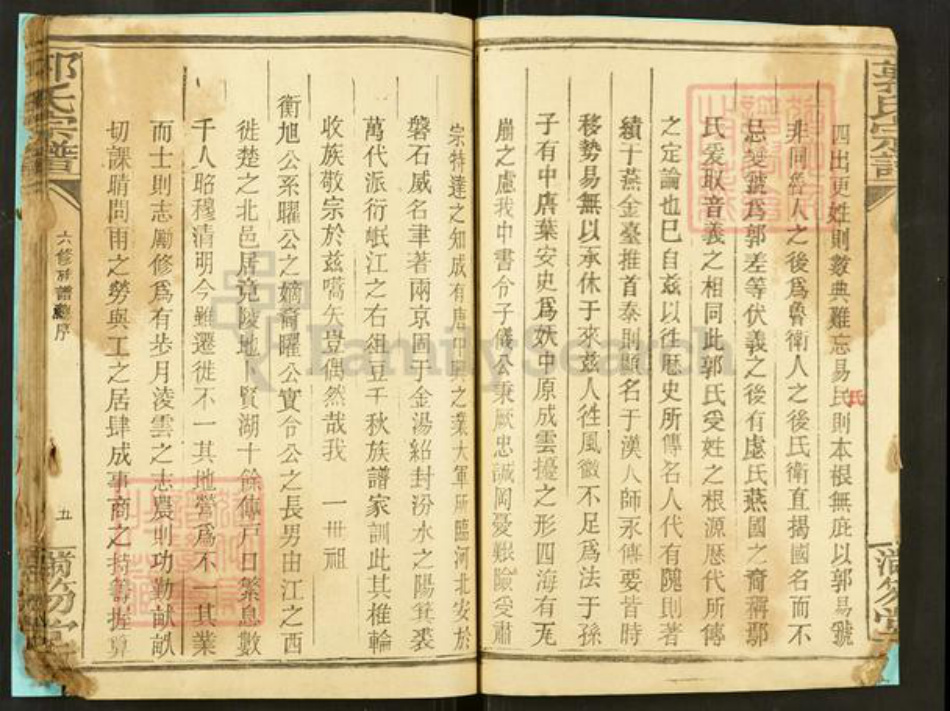 郭氏宗譜
滿笏堂
四出更姓則數典難忘易民則本根無庇以郭易虢
氏
非同魯人之後爲魯衛人之後氏衛直揭國名而不
忌變虢爲郭差等伏義之後有虙氏燕國之裔稱鄢
氏爰取音義之相同此郭氏受姓之根源歷代所傳
之定論也已自茲以往歷史所傳名人代有隗則著
績十燕金臺推首泰則顯名于漢人師永傳要皆時
移勢易無以承休于來茲人徃風微不足爲法于孫
子有中唐葉安史爲妖中原成雲擾之形四海有瓦
崩之慮我中書令子儀公秉厥忠誠罔憂艱險受肅
宗特達之知成有唐中興之業大軍所臨河北安於
磐石威名聿著兩京固于金湯紹封汾水之陽箕裘
萬代派衍岷江之右俎豆千秋族譜家訓此其椎輪
收族敬宗於茲嚆矢豈偶然哉我 一世祖
衡旭公系曜公之嫡裔曜公實合公之長男由江之西
徙楚之北邑居竟陵地卜賢湖十餘傳戸日繁息數
千人昭穆清明今雖遷徙不一其地營爲不一其業
而士則志勵修爲有步月淩雲之志農則功勤畎畝
切課晴問雨之勞與工之居肆成事商之持籌握算
郭氏宗譜
六修族譜總序
五
滿笏堂
FamilySearch